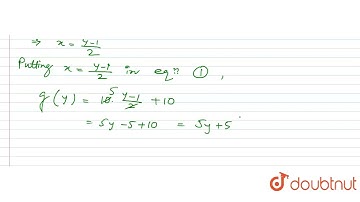 ⇒ x = y-1/2
Putting x = y-1/2 in eqⁿ ①,
g(y) = 10. y-1/2 + 10 5
= 5y - 5 + 10 = 5y + 5
doubtnut